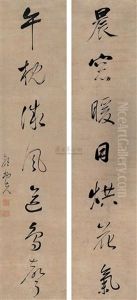 晨窓暖日烘花氣
午枕微風送鳥聲